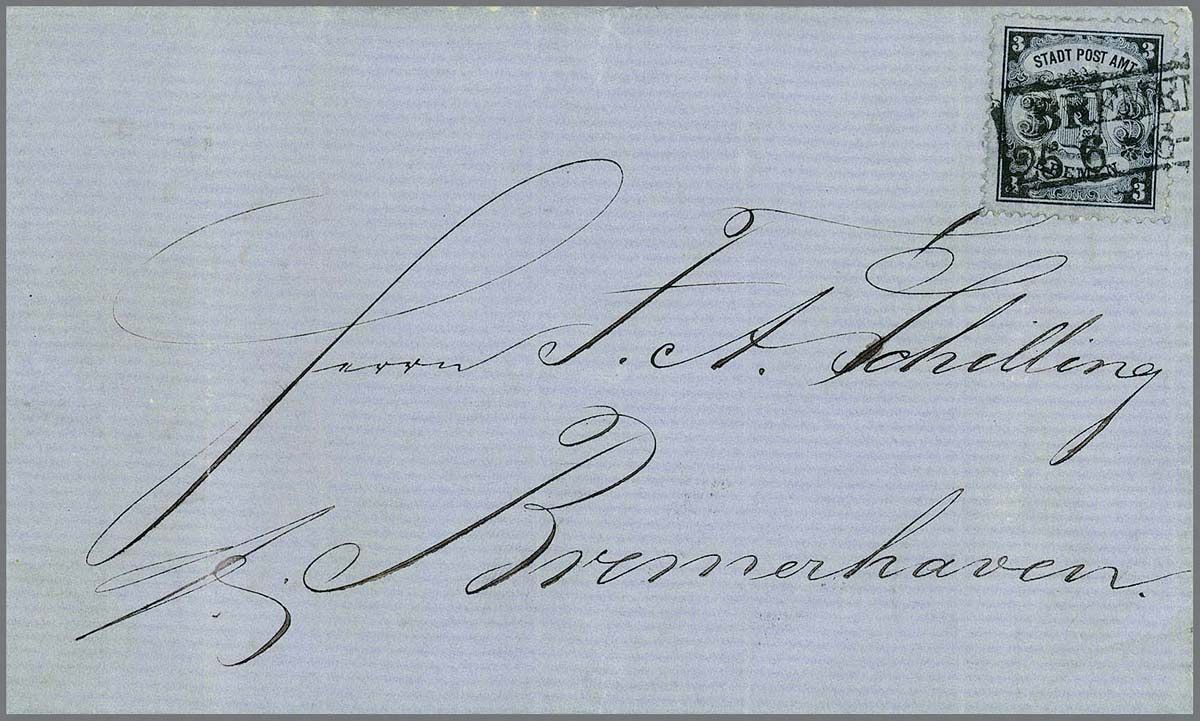 3 3
STADT POST AMT
BREMEN
25 6
BREMEN
3 3
Herrn F. A. Schilling
Bremerhaven.